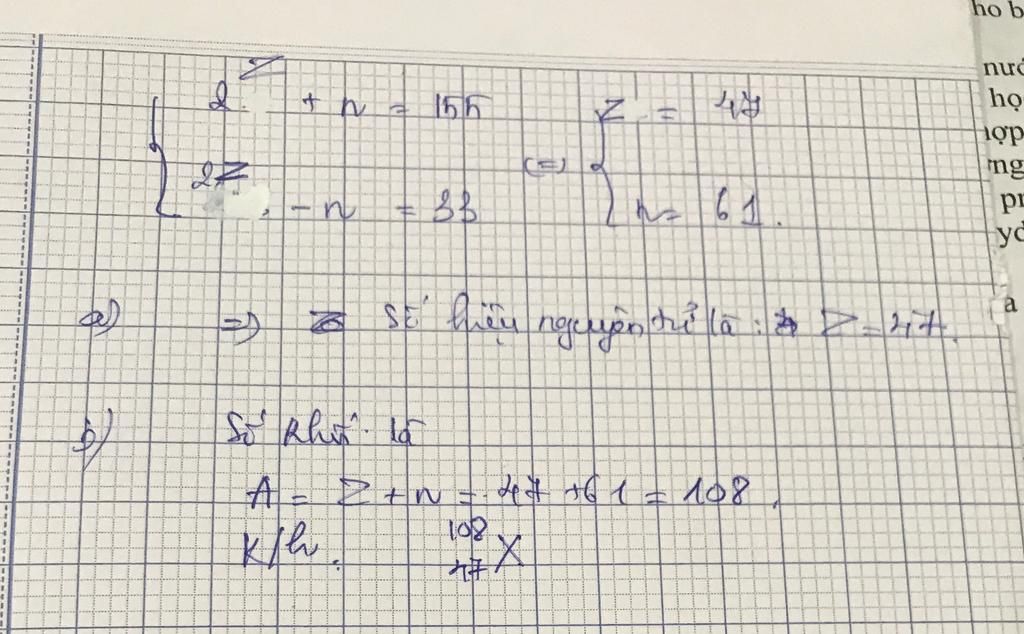 ho b
nướ
họ
hợp
ng
pr
yd
a
2Z + n = 155
2Z - n = 33
(=) Z = 47
n = 61.
a) => Số hiệu nguyên tử là : Z = 47.
b) Số khối là
A = Z + n = 47 + 61 = 108.
K/h : 108 47 X